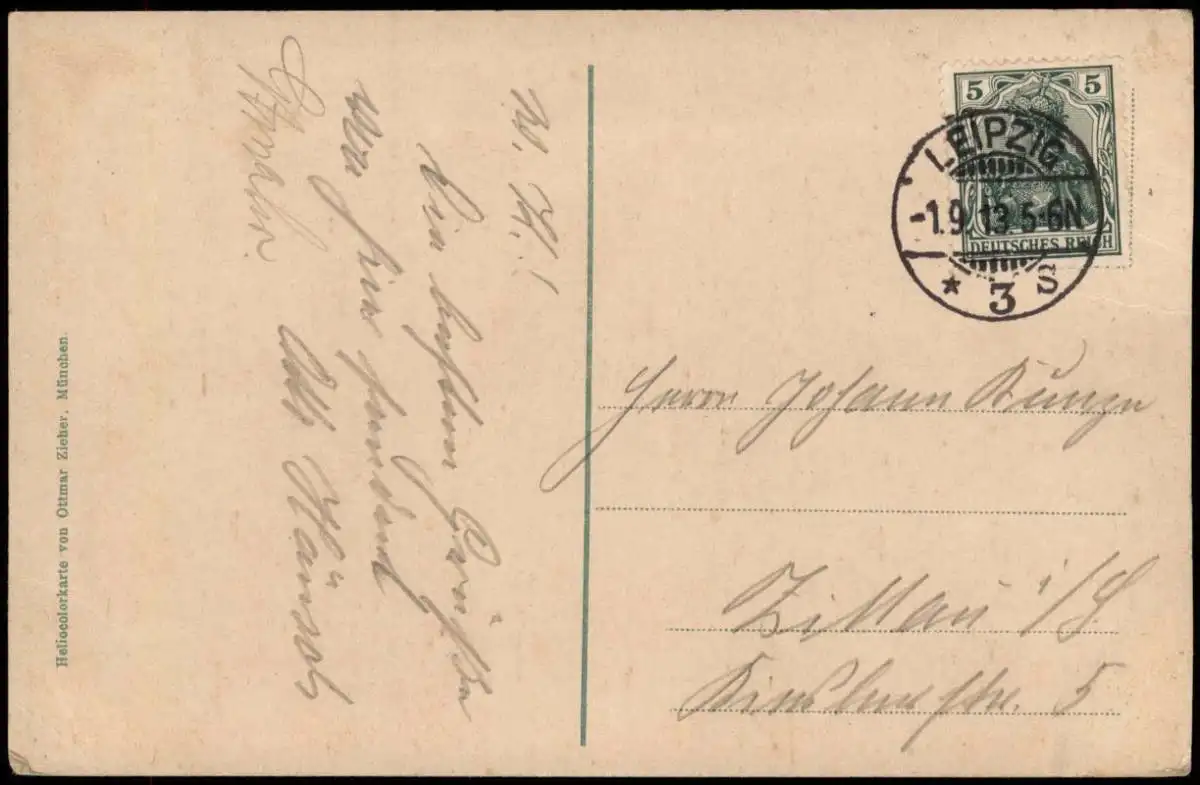 5 5
DEUTSCHES REICH
LEIPZIG
-1.9.13.5-6N
* 3 S
Herrn Johann Kunze
Zittau i/S.
str. 5
W. K.!
Die besten Grüße
von hier sendet
Otto
Heliocolorkarte von Ottmar Zieher, München.